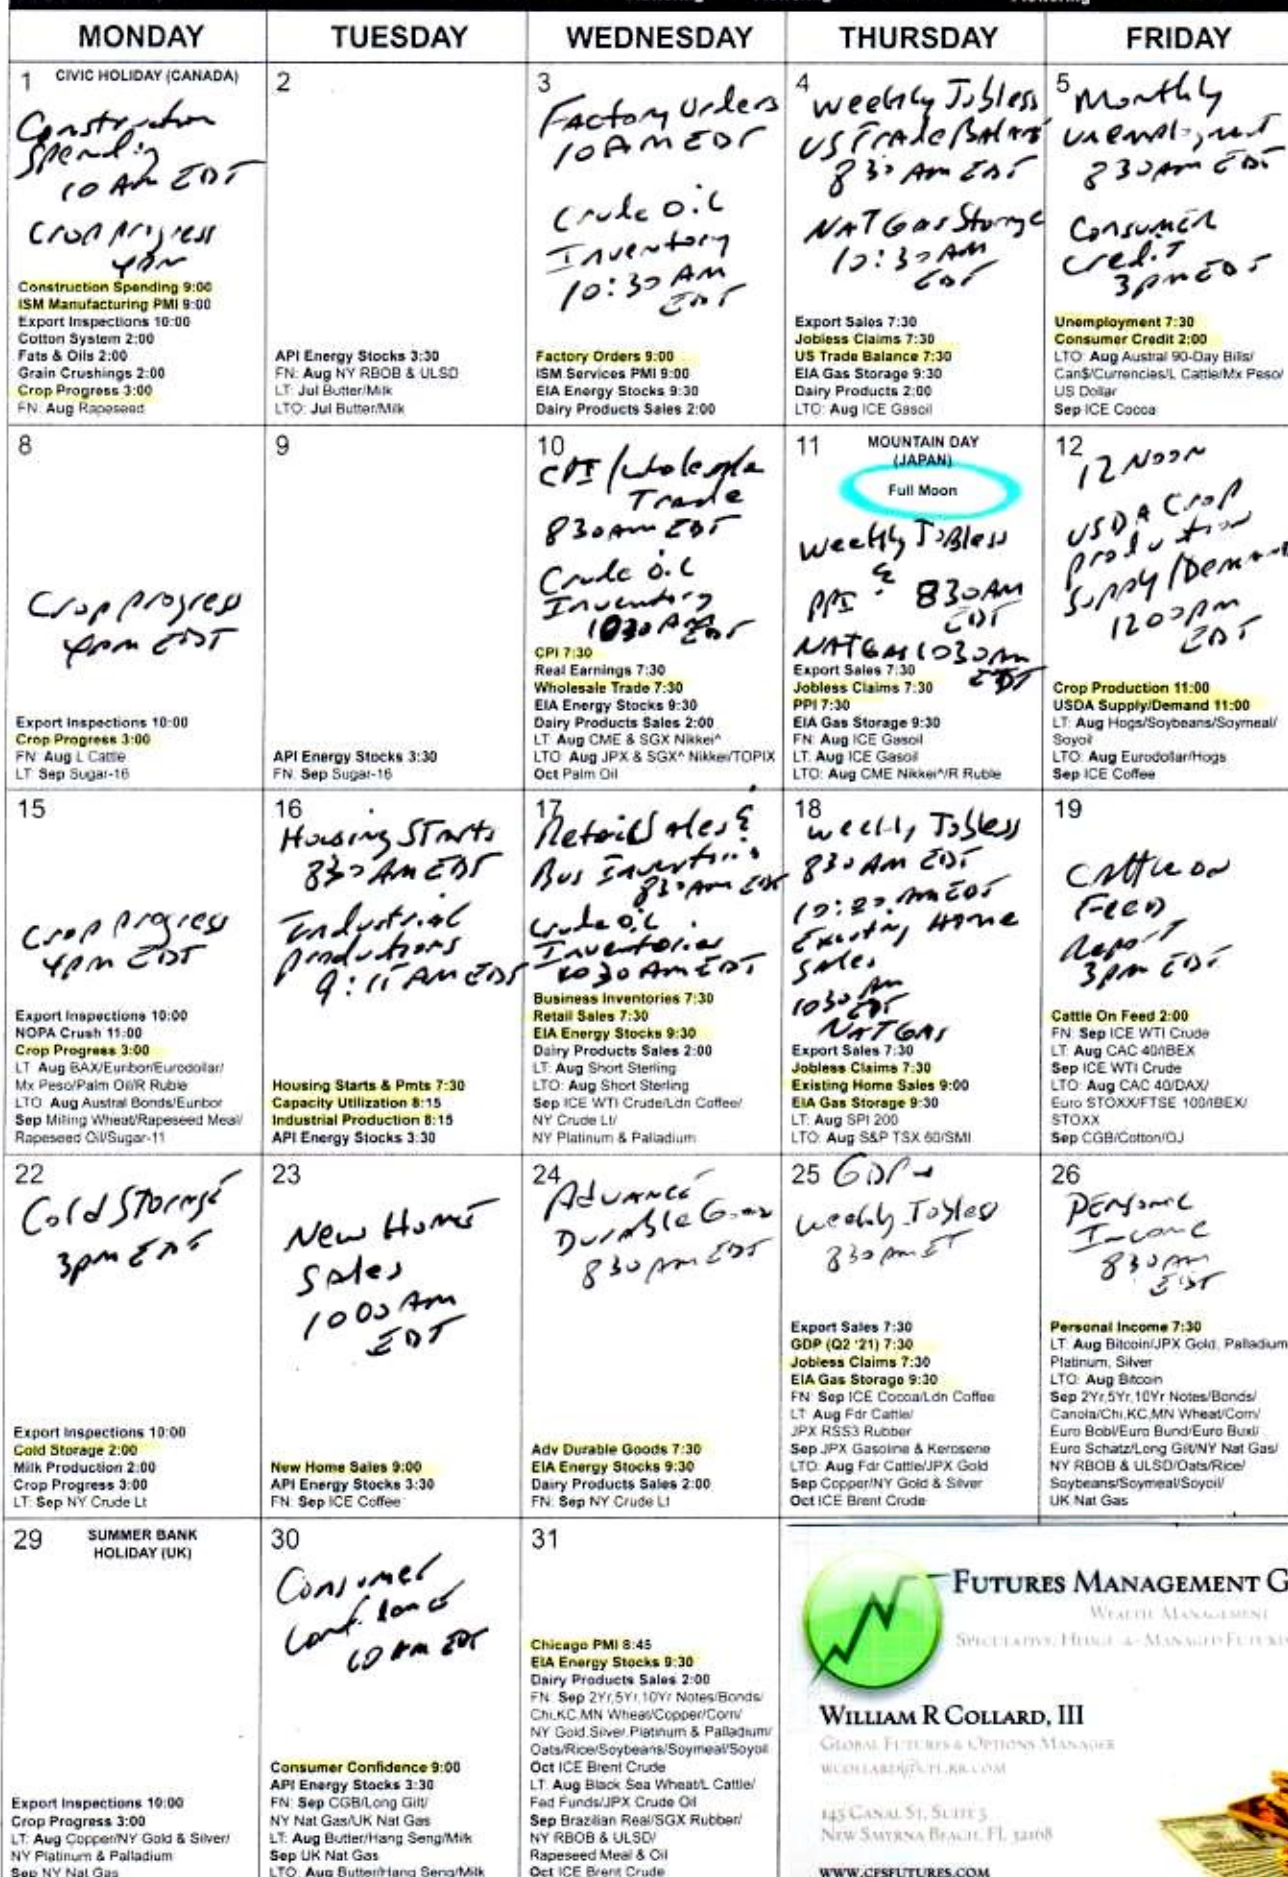 MONDAY TUESDAY WEDNESDAY THURSDAY FRIDAY
1 CIVIC HOLIDAY (CANADA)
Construction
Spending
10 AM EDT
Crop progress
4pm
Construction Spending 9:00
ISM Manufacturing PMI 9:00
Export Inspections 10:00
Cotton System 2:00
Fats & Oils 2:00
Grain Crushings 2:00
Crop Progress 3:00
FN: Aug Rapeseed
2
API Energy Stocks 3:30
FN: Aug NY RBOB & ULSD
LT: Jul Butter/Milk
LTO: Jul Butter/Milk
3
Factory Orders
10 AM EDT
Crude Oil
Inventory
10:30 AM
EDT
Factory Orders 9:00
ISM Services PMI 9:00
EIA Energy Stocks 9:30
Dairy Products Sales 2:00
4
Weekly Jobless
US Trade Balance
830 AM EDT
NAT Gas Storage
10:30 AM
EDT
Export Sales 7:30
Jobless Claims 7:30
US Trade Balance 7:30
EIA Gas Storage 9:30
Dairy Products 2:00
LTO: Aug ICE Gasoil
5
Monthly
unemployment
830 AM EDT
Consumer
Credit
3pm EDT
Unemployment 7:30
Consumer Credit 2:00
LTO: Aug Austral 90-Day Bills/
Can$/Currencies/L Cattle/Mx Peso/
US Dollar
Sep ICE Cocoa
8
Crop progress
4pm EDT
Export Inspections 10:00
Crop Progress 3:00
FN: Aug L Cattle
LT: Sep Sugar-16
9
API Energy Stocks 3:30
FN: Sep Sugar-16
10
CPI/wholesale
Trade
830 AM EDT
Crude Oil
Inventory
1030 AM EDT
CPI 7:30
Real Earnings 7:30
Wholesale Trade 7:30
EIA Energy Stocks 9:30
Dairy Products Sales 2:00
LT: Aug CME & SGX Nikkei^
LTO: Aug JPX & SGX^ Nikkei/TOPIX
Oct Palm Oil
11 MOUNTAIN DAY
(JAPAN)
Full Moon
Weekly Jobless
&
PPI 830 AM
EDT
NAT GAS 1030 AM
EDT
Export Sales 7:30
Jobless Claims 7:30
PPI 7:30
EIA Gas Storage 9:30
FN: Aug ICE Gasoil
LT: Aug ICE Gasoil
LTO: Aug CME Nikkei^/R Ruble
12
12 NOON
USDA Crop
production
Supply/Demand
1200 pm
EDT
Crop Production 11:00
USDA Supply/Demand 11:00
LT: Aug Hogs/Soybeans/Soymeal/
Soyoil
LTO: Aug Eurodollar/Hogs
Sep ICE Coffee
15
Crop progress
4pm EDT
Export Inspections 10:00
NOPA Crush 11:00
Crop Progress 3:00
LT: Aug BAX/Euribor/Eurodollar/
Mx Peso/Palm Oil/R Ruble
LTO: Aug Austral Bonds/Euribor
Sep Milling Wheat/Rapeseed Meal/
Rapeseed Oil/Sugar-11
16
Housing Starts
830 AM EDT
Industrial
productions
9:15 AM EDT
Housing Starts & Pmts 7:30
Capacity Utilization 8:15
Industrial Production 8:15
API Energy Stocks 3:30
17
Retail Sales &
Bus Inventories
830 AM EDT
Crude Oil
Inventories
1030 AM EDT
Business Inventories 7:30
Retail Sales 7:30
EIA Energy Stocks 9:30
Dairy Products Sales 2:00
LT: Aug Short Sterling
LTO: Aug Short Sterling
Sep ICE WTI Crude/Ldn Coffee/
NY Crude Lt/
NY Platinum & Palladium
18
Weekly Jobless
830 AM EDT
10:00 AM EDT
Existing Home
Sales
1030 AM
EDT
NAT GAS
Export Sales 7:30
Jobless Claims 7:30
Existing Home Sales 9:00
EIA Gas Storage 9:30
LT: Aug SPI 200
LTO: Aug S&P TSX 60/SMI
19
Cattle on
Feed
Report
3pm EDT
Cattle On Feed 2:00
FN: Sep ICE WTI Crude
LT: Aug CAC 40/IBEX
Sep ICE WTI Crude
LTO: Aug CAC 40/DAX/
Euro STOXX/FTSE 100/IBEX/
STOXX
Sep CGB/Cotton/OJ
22
Cold Storage
3pm EDT
Export Inspections 10:00
Cold Storage 2:00
Milk Production 2:00
Crop Progress 3:00
LT: Sep NY Crude Lt
23
New Home
Sales
1000 AM
EDT
New Home Sales 9:00
API Energy Stocks 3:30
FN: Sep ICE Coffee
24
Advance
Durable Goods
830 AM EDT
Adv Durable Goods 7:30
EIA Energy Stocks 9:30
Dairy Products Sales 2:00
FN: Sep NY Crude Lt
25 GDP
Weekly Jobless
830 AM ET
Export Sales 7:30
GDP (Q2 '21) 7:30
Jobless Claims 7:30
EIA Gas Storage 9:30
FN: Sep ICE Cocoa/Ldn Coffee
LT: Aug Fdr Cattle/
JPX RSS3 Rubber
Sep JPX Gasoline & Kerosene
LTO: Aug Fdr Cattle/JPX Gold
Sep Copper/NY Gold & Silver
Oct ICE Brent Crude
26
Personal
Income
830 AM
EDT
Personal Income 7:30
LT: Aug Bitcoin/JPX Gold, Palladium
Platinum, Silver
LTO: Aug Bitcoin
Sep 2Yr,5Yr,10Yr Notes/Bonds/
Canola/Chi,KC,MN Wheat/Corn/
Euro Bobl/Euro Bund/Euro Buxl/
Euro Schatz/Long Gilt/NY Nat Gas/
NY RBOB & ULSD/Oats/Rice/
Soybeans/Soymeal/Soyoil/
UK Nat Gas
29 SUMMER BANK
HOLIDAY (UK)
Export Inspections 10:00
Crop Progress 3:00
LT: Aug Copper/NY Gold & Silver/
NY Platinum & Palladium
Sep NY Nat Gas
30
Consumer
Confidence
10 AM EDT
Consumer Confidence 9:00
API Energy Stocks 3:30
FN: Sep CGB/Long Gilt/
NY Nat Gas/UK Nat Gas
LT: Aug Butter/Hang Seng/Milk
Sep UK Nat Gas
LTO: Aug Butter/Hang Seng/Milk
31
Chicago PMI 8:45
EIA Energy Stocks 9:30
Dairy Products Sales 2:00
FN: Sep 2Yr,5Yr,10Yr Notes/Bonds/
Chi,KC,MN Wheat/Copper/Corn/
NY Gold,Silver,Platinum & Palladium/
Oats/Rice/Soybeans/Soymeal/Soyoil
Oct ICE Brent Crude
LT: Aug Black Sea Wheat/L Cattle/
Fed Funds/JPX Crude Oil
Sep Brazilian Real/SGX Rubber/
NY RBOB & ULSD/
Rapeseed Meal & Oil
Oct ICE Brent Crude
FUTURES MANAGEMENT G
WEALTH MANAGEMENT
SPECULATIVE, HEDGE & MANAGED FUTURES
WILLIAM R COLLARD, III
GLOBAL FUTURES & OPTIONS MANAGER
WCOLLARD@CFL.RR.COM
145 CANAL ST, SUITE 5
NEW SMYRNA BEACH, FL 32168
WWW.CFSFUTURES.COM